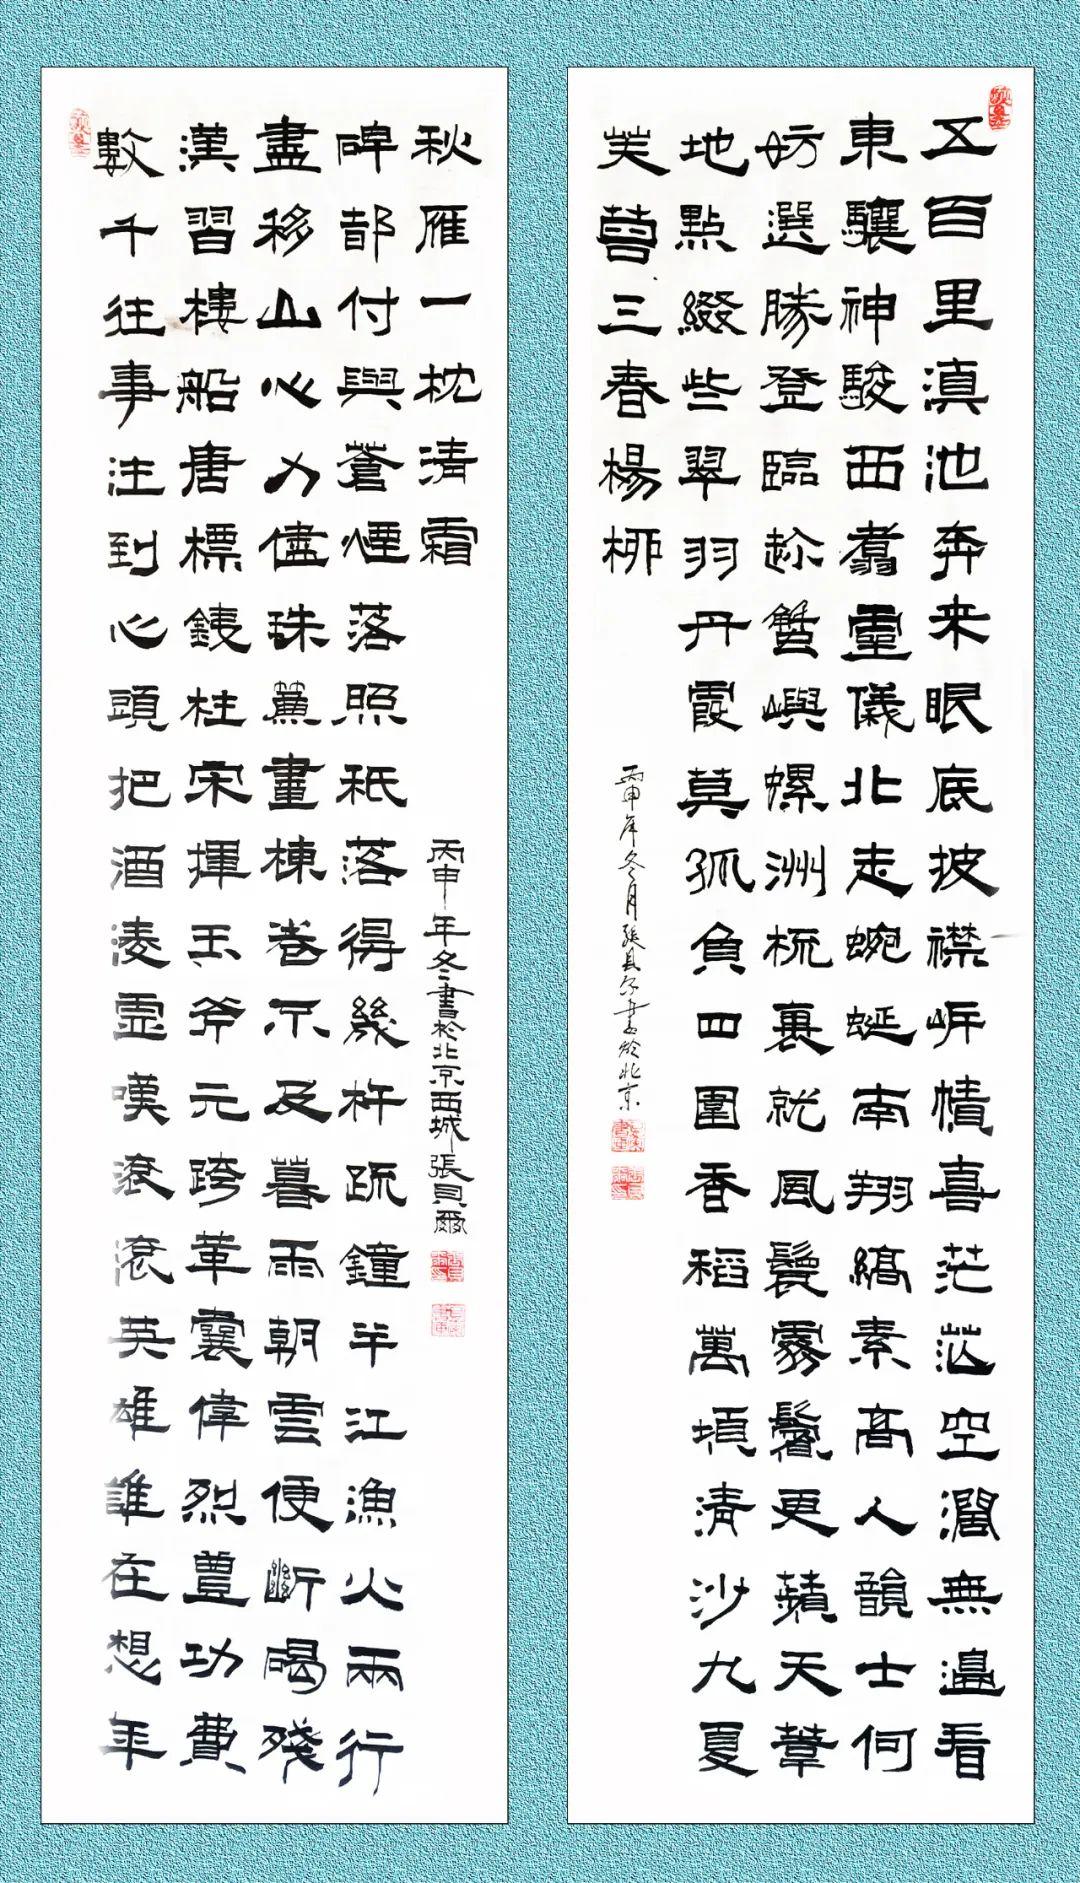 五百里滇池奔来眼底披襟岸幘喜茫茫空濶無邊看
東驤神駿西翥靈儀北走蜿蜒南翔縞素高人韻士何
妨選勝登臨趁蟹嶼螺洲梳裹就風鬟霧鬢更蘋天葦
地點綴些翠羽丹霞莫孤負四圍香稻萬頃清沙九夏
芙蓉三春楊柳
丙申年冬月張貝尔書於北京
數千往事注到心頭把酒凌虛嘆滾滾英雄誰在想年
漢習樓船唐標銕柱宋揮玉斧元跨革囊偉烈豐功費
盡移山心力儘珠簾畫棟卷不及暮雨朝雲便斷碣殘
碑都付與蒼煙落照祇落得幾杵疏鐘半江漁火兩行
秋雁一枕清霜
丙申年冬書於北京西城張貝爾